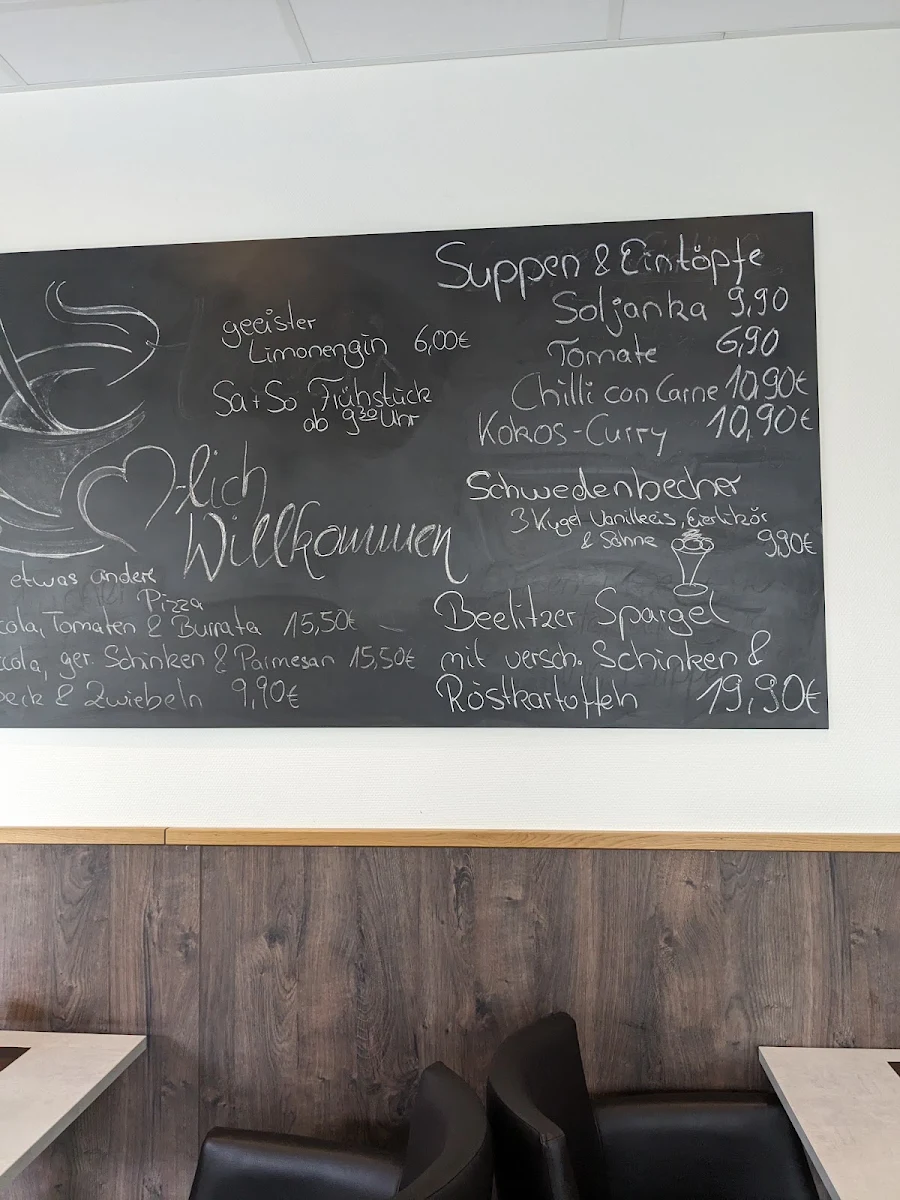 geeister
Limonengin 6,00€
Sa+So Frühstück
ab 9³⁰ Uhr
lich
Willkommen
etwas andere
Pizza
Tomaten & Burrata 15,50€
ger. Schinken & Parmesan 15,50€
& Zwiebeln 9,90€
Suppen & Eintöpfe
Soljanka 9,90
Tomate 6,90
Chilli con Carne 10,90€
Kokos-Curry 10,90€
Schwedenbecher
3 Kugel Vanilleeis, Eierlikör
& Sahne 9,90€
Beelitzer Spargel
mit versch. Schinken &
Röstkartoffeln 19,90€